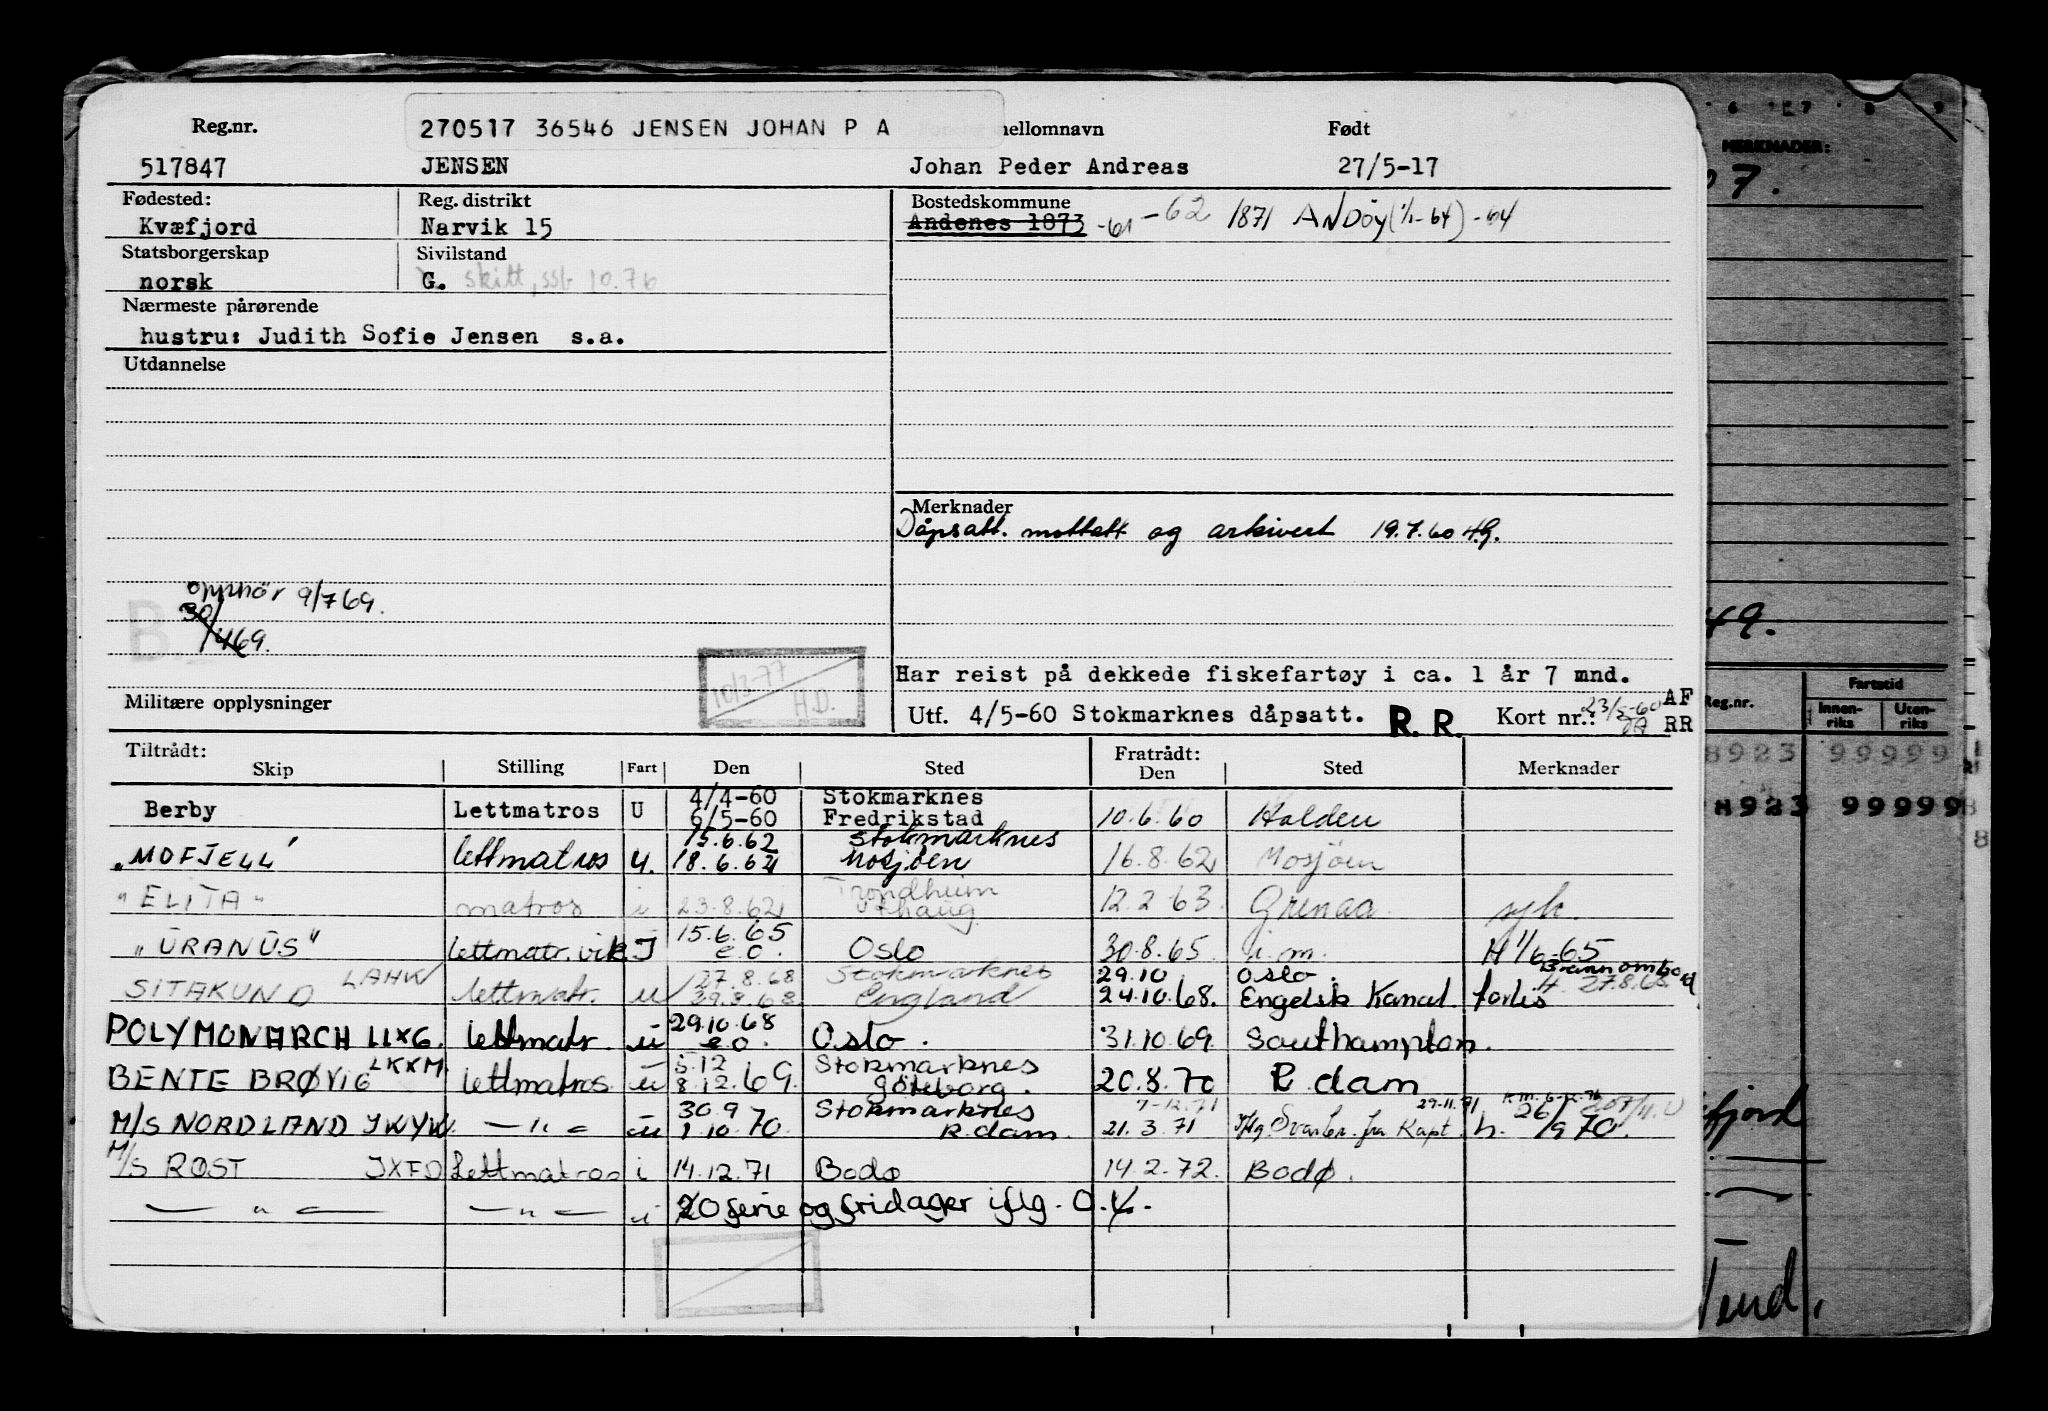 Reg.nr. 270517 36546 JENSEN JOHAN P A mellomnavn Født
517847 JENSEN Johan Peder Andreas 27/5-17
Fødested: Reg. distrikt Bostedskommune
Kvæfjord Narvik 15 Andenes 1873 -61 -62 1871 ANDÖY (1/1-64) -64
Statsborgerskap Sivilstand
norsk G. skilt, ssb 10.76
Nærmeste pårørende
hustru: Judith Sofie Jensen s.a.
Utdannelse
Merknader
Dåpsatt. mottatt og arkivert 19.7.60 H.G.
opphör 9/7 69.
30/4 69.
B.
10/3-77
H.D.
Har reist på dekkede fiskefartøy i ca. 1 år 7 mnd.
Militære opplysninger
Utf. 4/5-60 Stokmarknes dåpsatt. R. R. Kort nr.: 23/5-60 AF
RR
Tiltrådt: Fratrådt:
Skip Stilling Fart Den Sted Den Sted Merknader
4/4-60 Stokmarknes
Berby Lettmatros U 6/5-60 Fredrikstad 10.6.60 Halden
15.6.62 Stokmarknes
"MOFJELL" lettmatros u. 18.6.62 Mosjöen 16.8.62 Mosjöen
Trondheim
"ELITA" matros i 23.8.62 12.2.63 Grenaa syk.
15.6.65
"URANUS" lettmatr. vik I e.o. Oslo 30.8.65 i.m. H 1/6-65
LAHK 27.8.68 Stokmarknes 29.10 Oslo. Brann ombord
SITAKUND lettmatr. u 29.8.68 England 24.10.68. Engelsk Kanal forlis H. 27.8.68
29.10.68
POLYMONARCH LLXG. lettmatr. u e o. Oslo. 31.10.69 Southampton.
LKKM 5.12 Stokmarknes
BENTE BRØVIG lettmatros. u 8.12.69. Göteborg. 20.8.70 R dam
30.9 Stokmarknes 7-12.71 29-11.71
M/S NORDLAND JWYW. — " — u 1.10.70. R.dam. 21.3.71 iflg. Svarbr. fra Kapt. h. 26/9 70.
M/S RØST JXFD Lettmatros i 14.12.71 Bodø 14.2.72. Bodø.
— " — — " — i 20 ferie og fridager iflg. O.
6 7 8 9
MERKNADER:
07.
49.
Reg.nr. Fartstid
Innenriks Utenriks
8923 99999
8923 99999
fjord